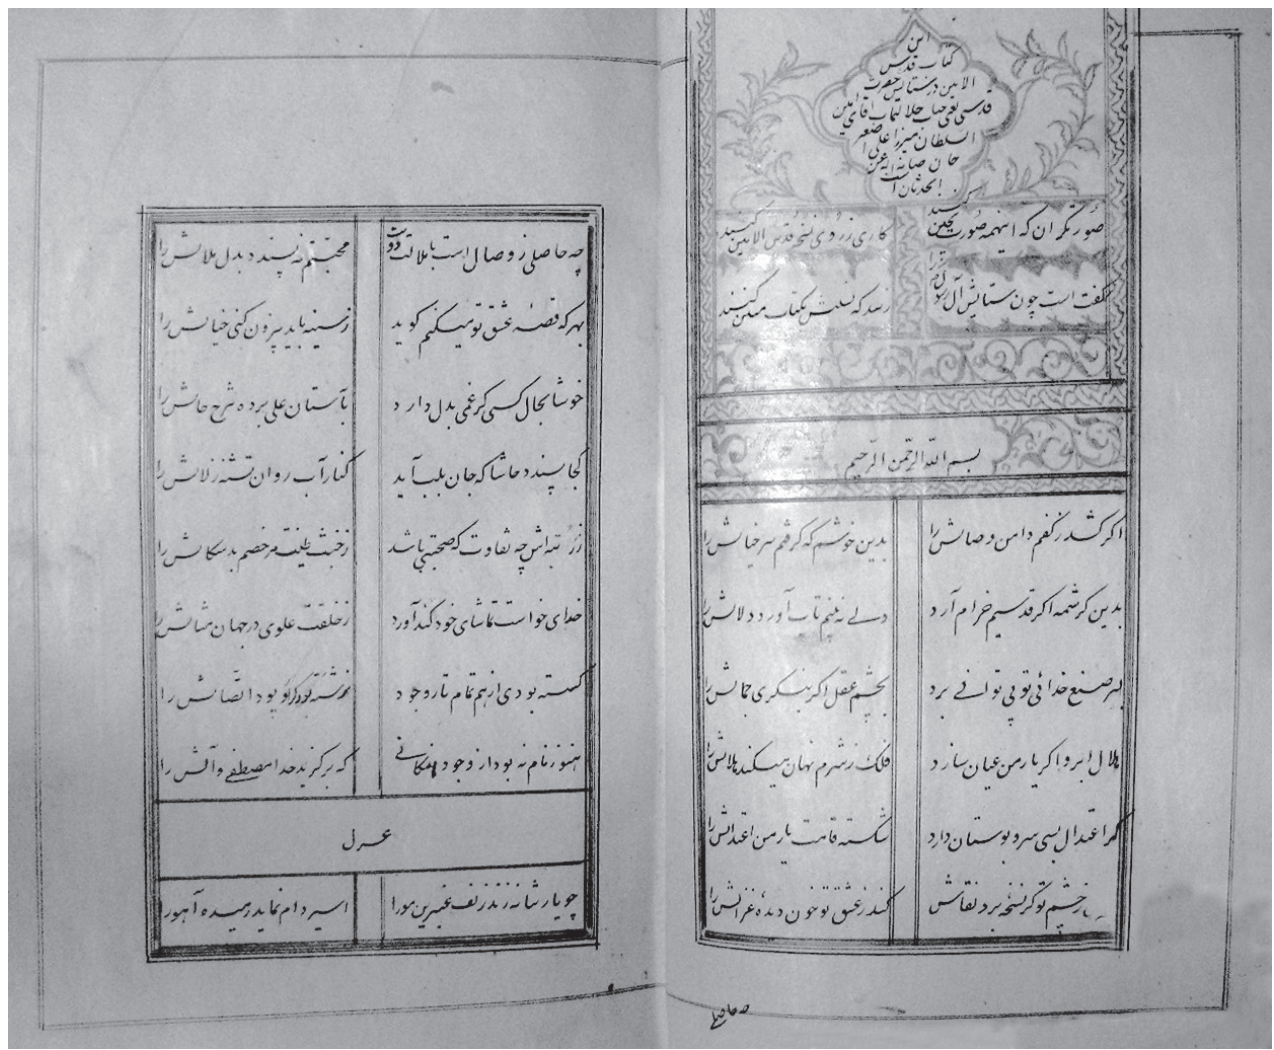 این
کتاب قدس
الامین در ستایش حضرت
قدسی یعنی جناب جلالتمآب آقای امین
السلطان میرزا علی اصغر
خان صانه الله عن
الحدثان است
صورتگران که اینهمه صورت بچین کنند
کاری ز روی نسخه قدس الامین کنند
گفت است چون ستایش آل رسول را
زیبد که نسلش
بسم الله الرحمن الرحیم
اگر کشد ز کفم دامن وصالش را
بدین خوشم که گرفتم سر خیالش را
بدین کرشمه اگر قدسیم خرام آرد
دلی نه بینم تاب آورد دلالش را
بسر صنع خدائی تو پی توانی برد
بچشم عقل اگر بنگری جمالش را
هلال ابرو اگر یار من عیان سازد
فلک ز شرم نهان میکند هلالش را
گر اعتدال بسی سرو بوستان دارد
شکسته قامت یار من اعتدالش را
ز چشم تو گر نسخه برد نقاش
کند ز عشق تو خون دیده غزالش را
چه حاصلی
چه حاصلی ز وصال است با ملالت دوست
محبتم نه پسندد بدل ملالش را
بهر که قصه عشق تو میکنم گوید
ز سینه باید بیرون کنی خیالش را
خوشا بحال کسی کز غمی بدل دارد
بآستان علی برده شرح حالش را
کجا پسندد حاشا که جان بلب آید
کنار آب روان تشنه زلالش را
ز رتبه اش چه تفاوت که صحبتی باشد
ز خبث طینت مر خصم بدسگالش را
خدای خواست تماشای خود کند آورد
ز خلقت علوی در جهان مثالش را
گسسته بودی از هم تمام تار وجود
پود اتصالش را
هنوز نام نه بود از وجود امکانی
که برگزید خدا مصطفی و آلش را
غزل
چو یار شانه زند زلف عنبرین مو را
اسیر دام نماید رمیده آهو را